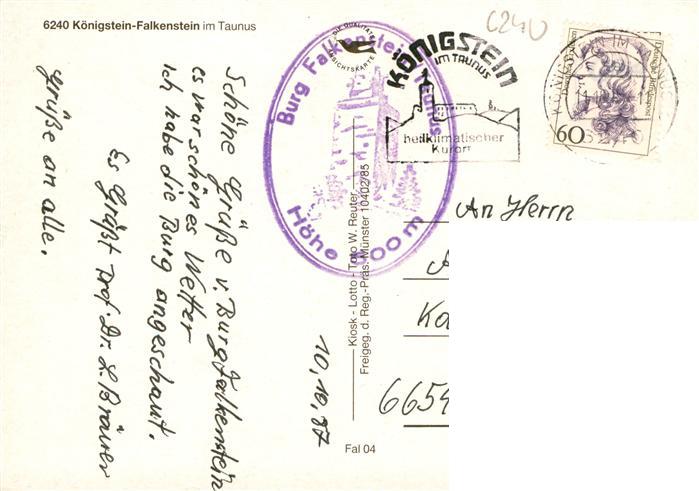 6240 Königstein-Falkenstein im Taunus
Schöne Grüße v. Burg Falkenstein
es war schönes Wetter
ich habe die Burg angeschaut.
Es Grüßt Prof. Dr. L. Bräuer
grüße an alle.
10.10.87
Burg Falkenstein Taunus
Höhe 500 m
DIE QUALITÄTS
ANSICHTSKARTE
KÖNIGSTEIN
IM TAUNUS
heilklimatischer
Kurort
6240
Deutsche Bundespost
60
Kiosk - Lotto - Toto W. Reuter
Freigeg. d. Reg.-Präs. Münster 10402/85
Fal 04
An Herrn
Ka
6654